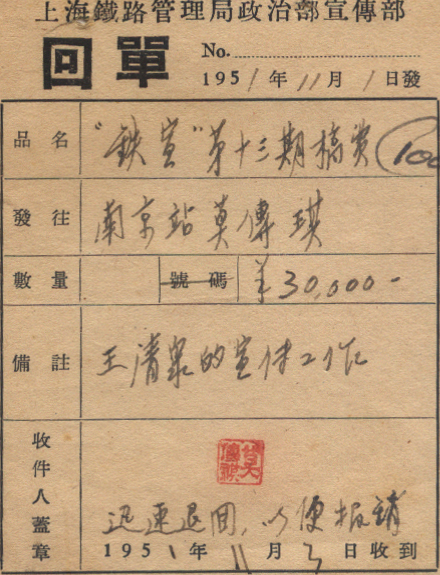 上海鐵路管理局政治部宣傳部
回單
No.
1951年11月1日發
品名 "鉄宣"第十三期稿费 100
發往 南京站莫傳琪
數量 號碼 ¥30,000-
備註 王清泉的宣传工作
收件人蓋章
迅速退回,以便报銷
1951年11月3日收到